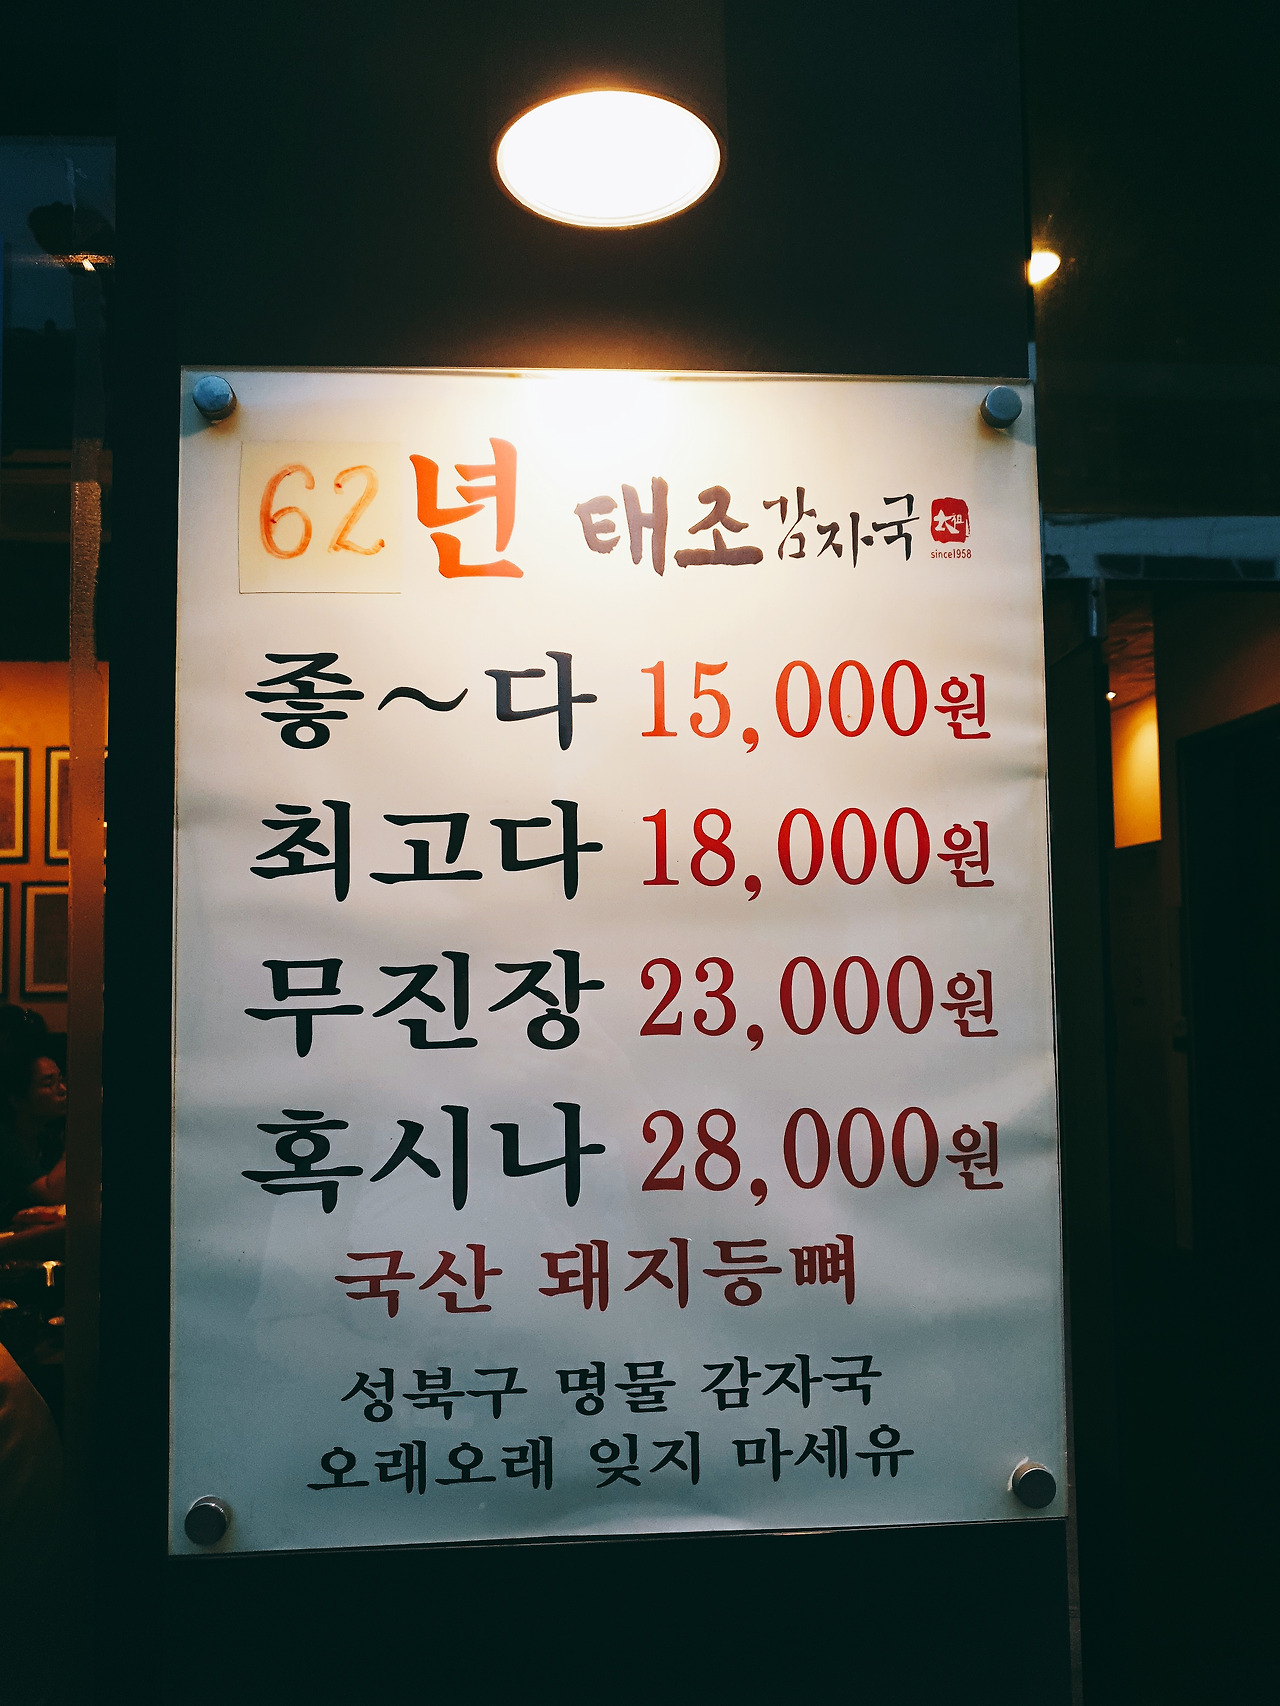 62년 태조감자국 太祖
since1958
좋~다 15,000원
최고다 18,000원
무진장 23,000원
혹시나 28,000원
국산 돼지등뼈
성북구 명물 감자국
오래오래 잊지 마세유